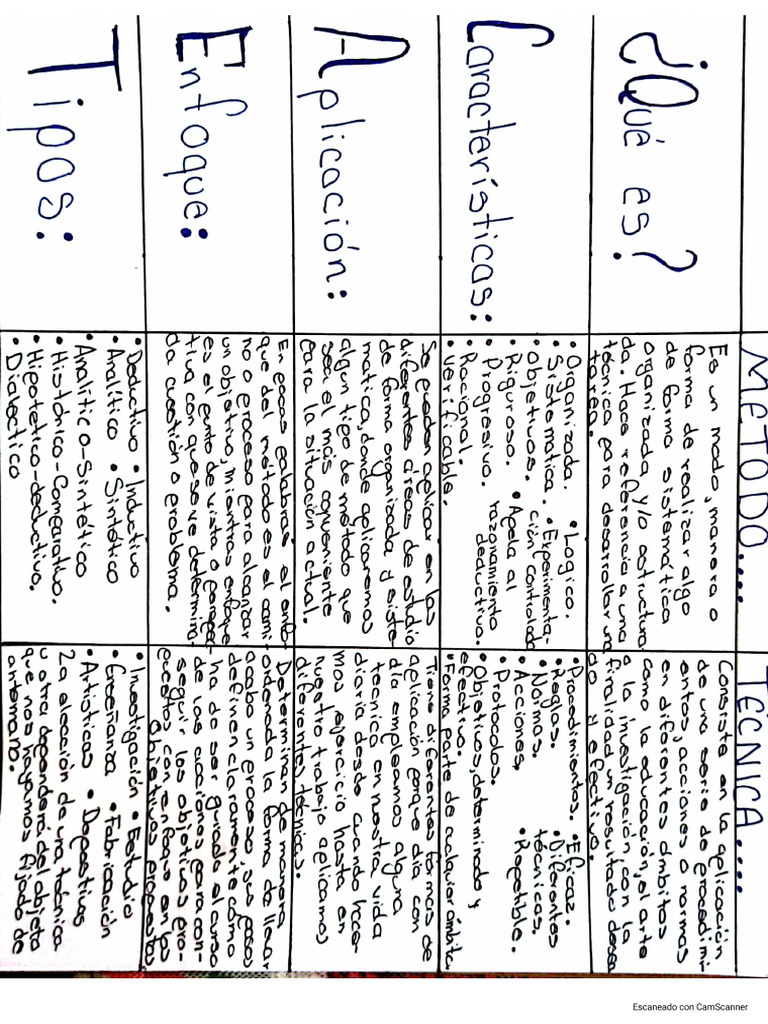 METODO....
TÉCNICA.....
¿Qué es?
Es un modo, manera o
forma de realizar algo
de forma sistemática
organizada y/o estructura
da. Hace referencia a una
técnica para desarrollar una
tarea.
Consiste en la aplicación
de una serie de procedimi
entos, acciones o normas
en diferentes ámbitos
como la educación, el arte
o la investigación con la
finalidad un resultado desea
do y efectivo.
Características:
• Organizada. • Logico.
• Sistematica. • Experimenta-
• Objetivos. ción controlada
• Riguroso. • Apela al
• Progresivo. razonamiento
• Racional. deductivo.
• Verificable.
• Procedimientos. • Eficaz.
• Reglas. • Diferentes
• Normas. técnicas.
• Acciones. • Repetible.
• Protocolos.
• Objetivos, determinado y
efectivo.
• Forma parte de cualquier ámbito.
Aplicación:
Se pueden aplicar en las
diferentes áreas de estudio
de forma organizada y siste
matica, donde aplicaremos
algun tipo de método que
sea el más conveniente
para la situación actual.
Tiene diferentes formas de
aplicación porque día con
día empleamos alguna
tecnica en nuestra vida
diaria desde cuando hace-
mos ejercicio hasta en
nuestro trabajo aplicamos
diferentes técnicas.
Enfoque:
En pocas palabras el enfo-
que del método es el cami-
no o proceso para alcanzar
un objetivo, mientras enfoque
es el punto de vista o perspec-
tiva con que se ve determina
da cuestión o problema.
Determinan de manera
ordenada la forma de llevar
acabo un proceso, sus pasos
definen claramente cómo
ha de ser guiado el curso
de las acciones para con-
seguir los objetivos pro-
puestos, con enfoque en los
objetivos propuestos
Tipos:
• Deductivo • Inductivo
• Analítico • Sintético
• Analitico-Sintético
• Histórico-Comparativo.
• Hipotetico-deductivo.
• Dialectico
• Investigación • Estudio
• Enseñanza • Fabricación
• Artisticas • Deportivas
La elección de una técnica
u otra dependerá del objeto
que nos hayamos fijado de
antemano.
Escaneado con CamScanner